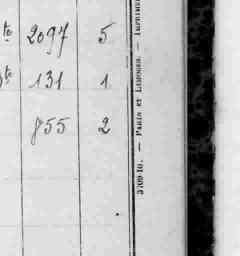 to 2097 5
to 131 1
855 2
3709-10. — PARIS ET LIMOGES. — IMPRIMER